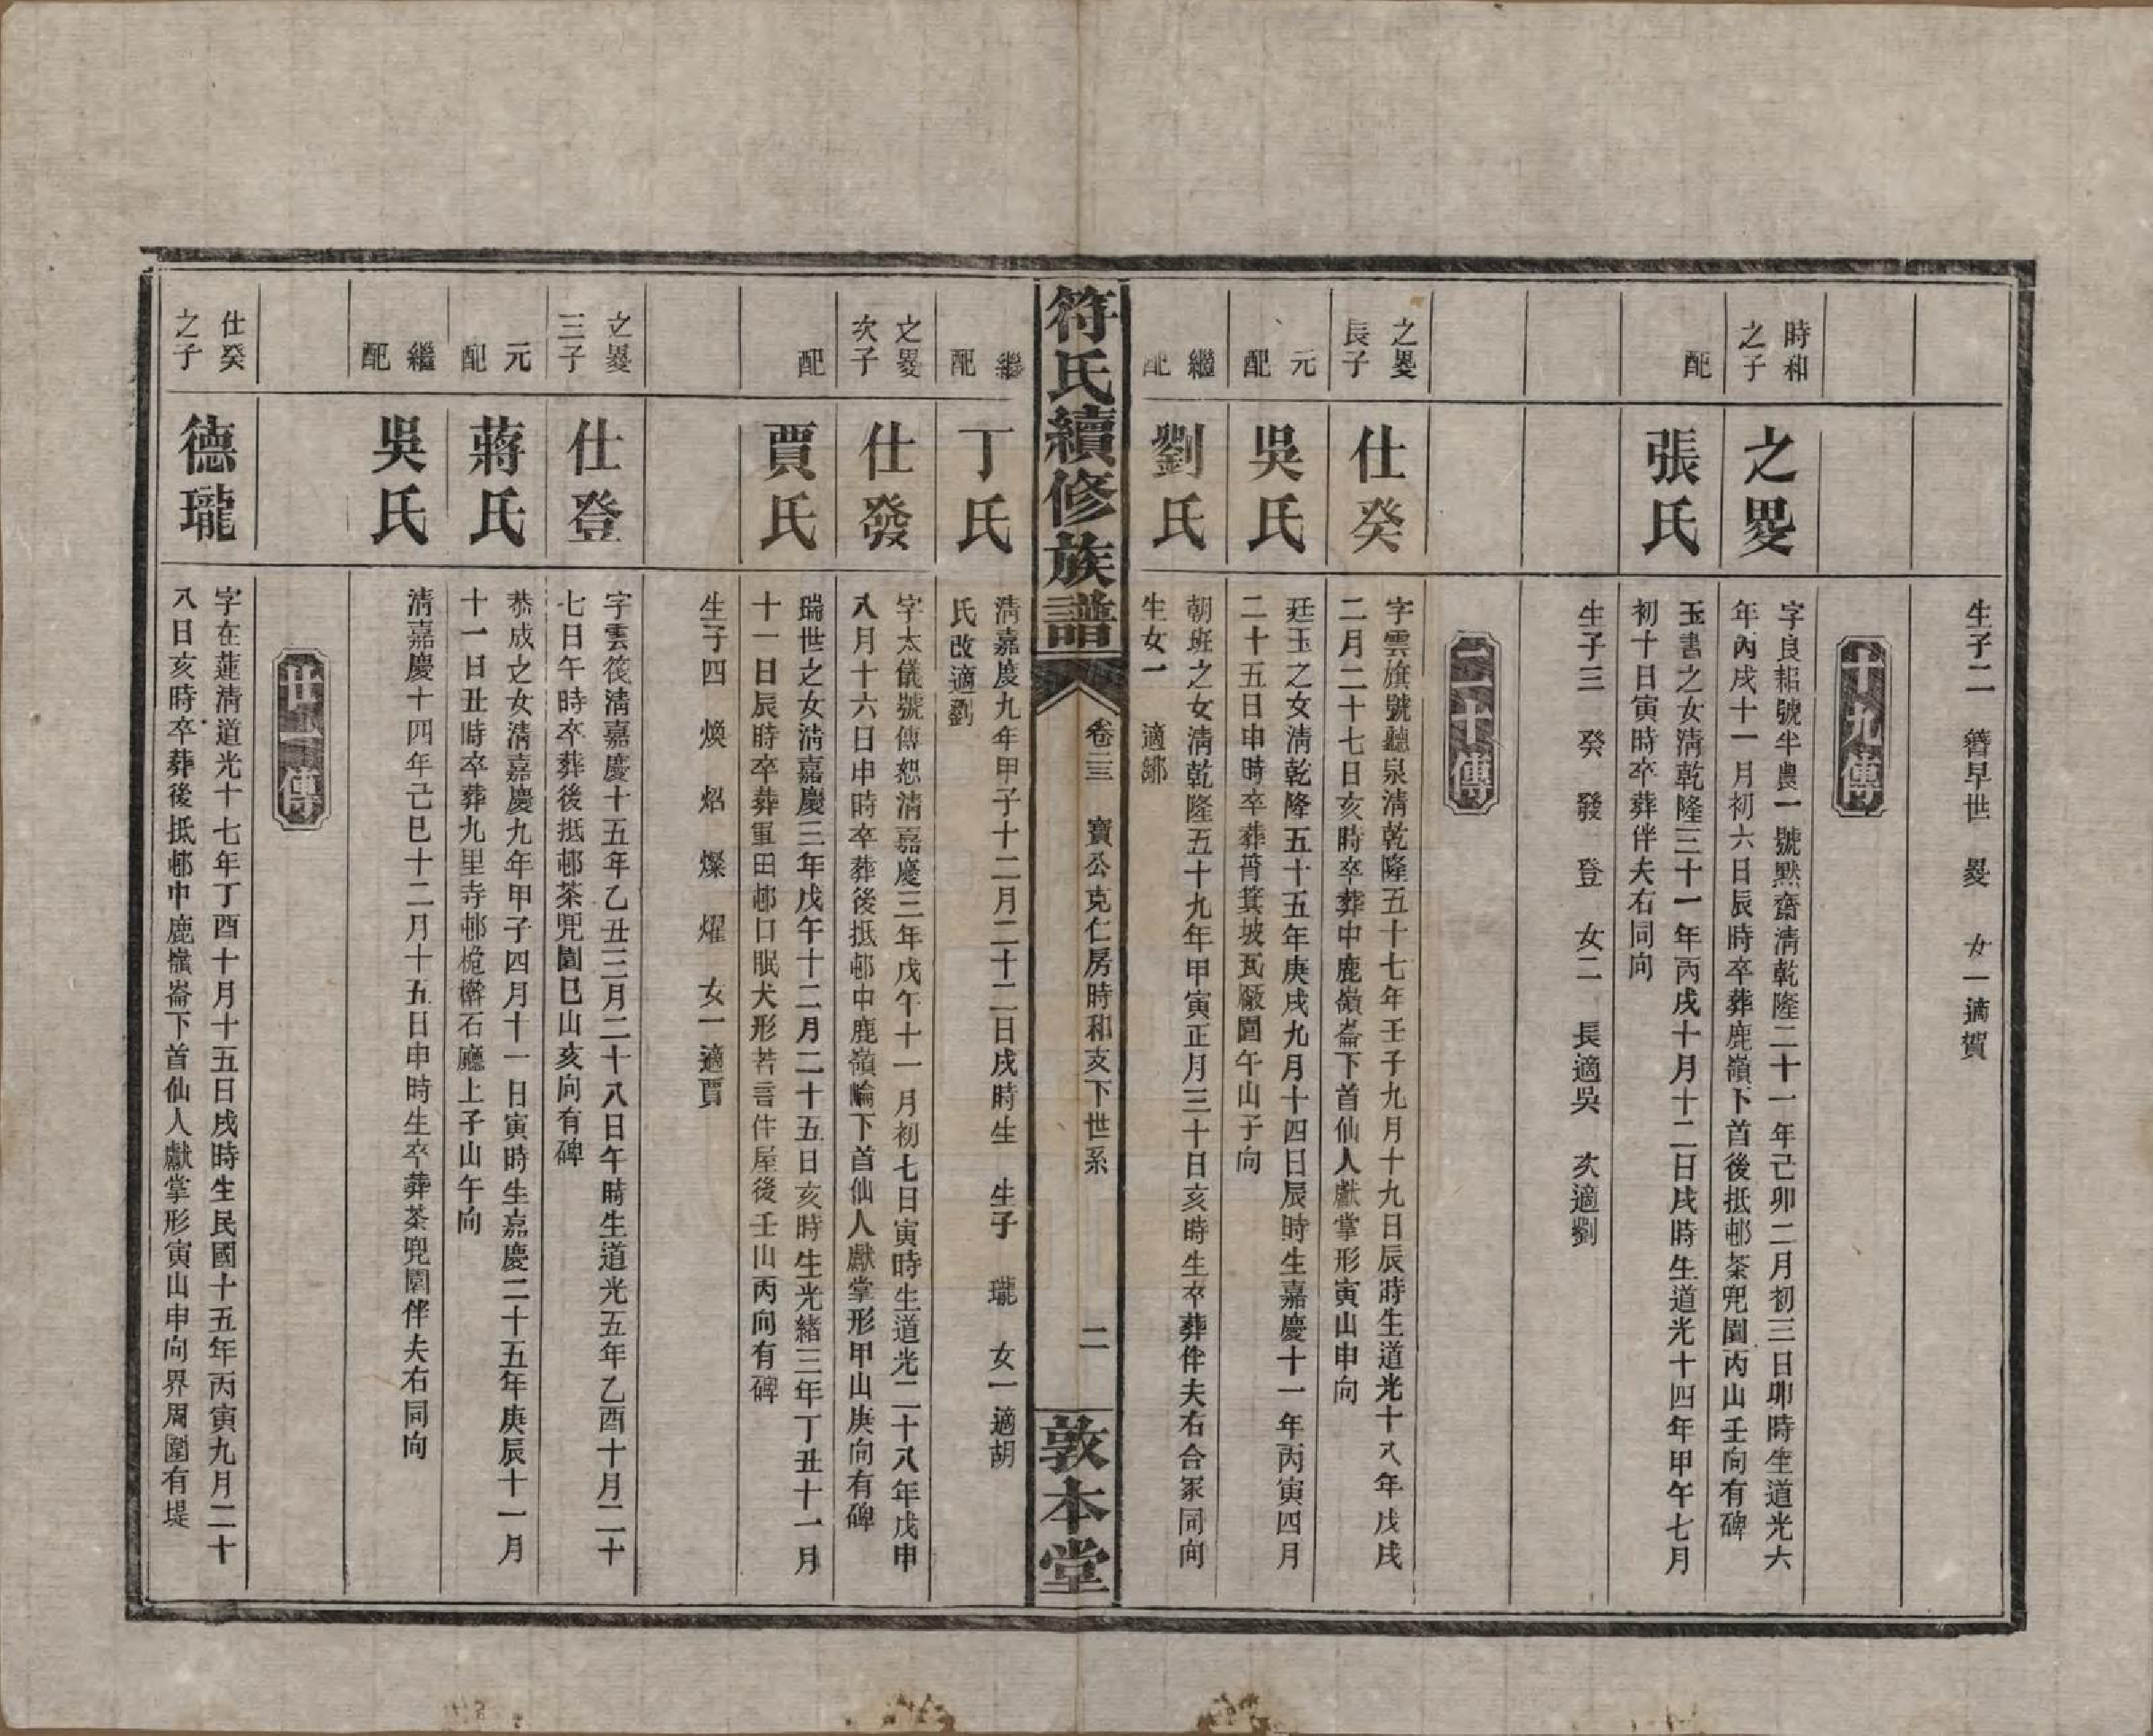 生子二 簪早世 畟 女一適賀
十九傳
時和之子
之畟
字良耜號半農一號默齋清乾隆二十一年己卯二月初三日卯時生道光六
年丙戌十一月初六日辰時卒葬鹿嶺下首後抵邨茶兜園丙山壬向有碑
配
張氏
玉書之女清乾隆三十一年丙戌十月十二日戌時生道光十四年甲午七月
初十日寅時卒葬伴夫右同向
生子三 癸 發 登 女二 長適吳 次適劉
二十傳
之畟長子
仕癸
字雲旗號聽泉清乾隆五十七年壬子九月十九日辰時生道光十八年戊戌
二月二十七日亥時卒葬中鹿嶺崙下首仙人獻掌形寅山申向
元配
吳氏
廷玉之女清乾隆五十五年庚戌九月十四日辰時生嘉慶十一年丙寅四月
二十五日申時卒葬筲箕坡瓦廠園午山子向
繼配
劉氏
朝班之女清乾隆五十九年甲寅正月三十日亥時生卒葬伴夫右合冢同向
生女一 適鄒
符氏續修族譜
卷三 寶公克仁房時和支下世系
二
敦本堂
繼配
丁氏
清嘉慶九年甲子十二月二十二日戌時生 生子 瓏 女一適胡
氏改適劉
之畟次子
仕發
字太儀號傳恕清嘉慶三年戊午十一月初七日寅時生道光二十八年戊申
八月十六日申時卒葬後抵邨中鹿嶺崙下首仙人獻掌形甲山庚向有碑
配
賈氏
瑞世之女清嘉慶三年戊午十二月二十五日亥時生光緒三年丁丑十一月
十一日辰時卒葬軍田邨口眠犬形若言仵屋後壬山丙向有碑
生子四 煥 炤 燦 燿 女一適賈
之畟三子
仕登
字雲筏清嘉慶十五年乙丑三月二十八日午時生道光五年乙酉十月二十
七日午時卒葬後抵邨茶兜園巳山亥向有碑
元配
蔣氏
恭成之女清嘉慶九年甲子四月十一日寅時生嘉慶二十五年庚辰十一月
十一日丑時卒葬九里寺邨桅檊石廳上子山午向
繼配
吳氏
清嘉慶十四年己巳十二月十五日申時生卒葬茶兜園伴夫右同向
廿一傳
仕癸之子
德瓏
字在蓮清道光十七年丁酉十月十五日戌時生民國十五年丙寅九月二十
八日亥時卒葬後抵邨中鹿嶺崙下首仙人獻掌形寅山申向界周圍有堤